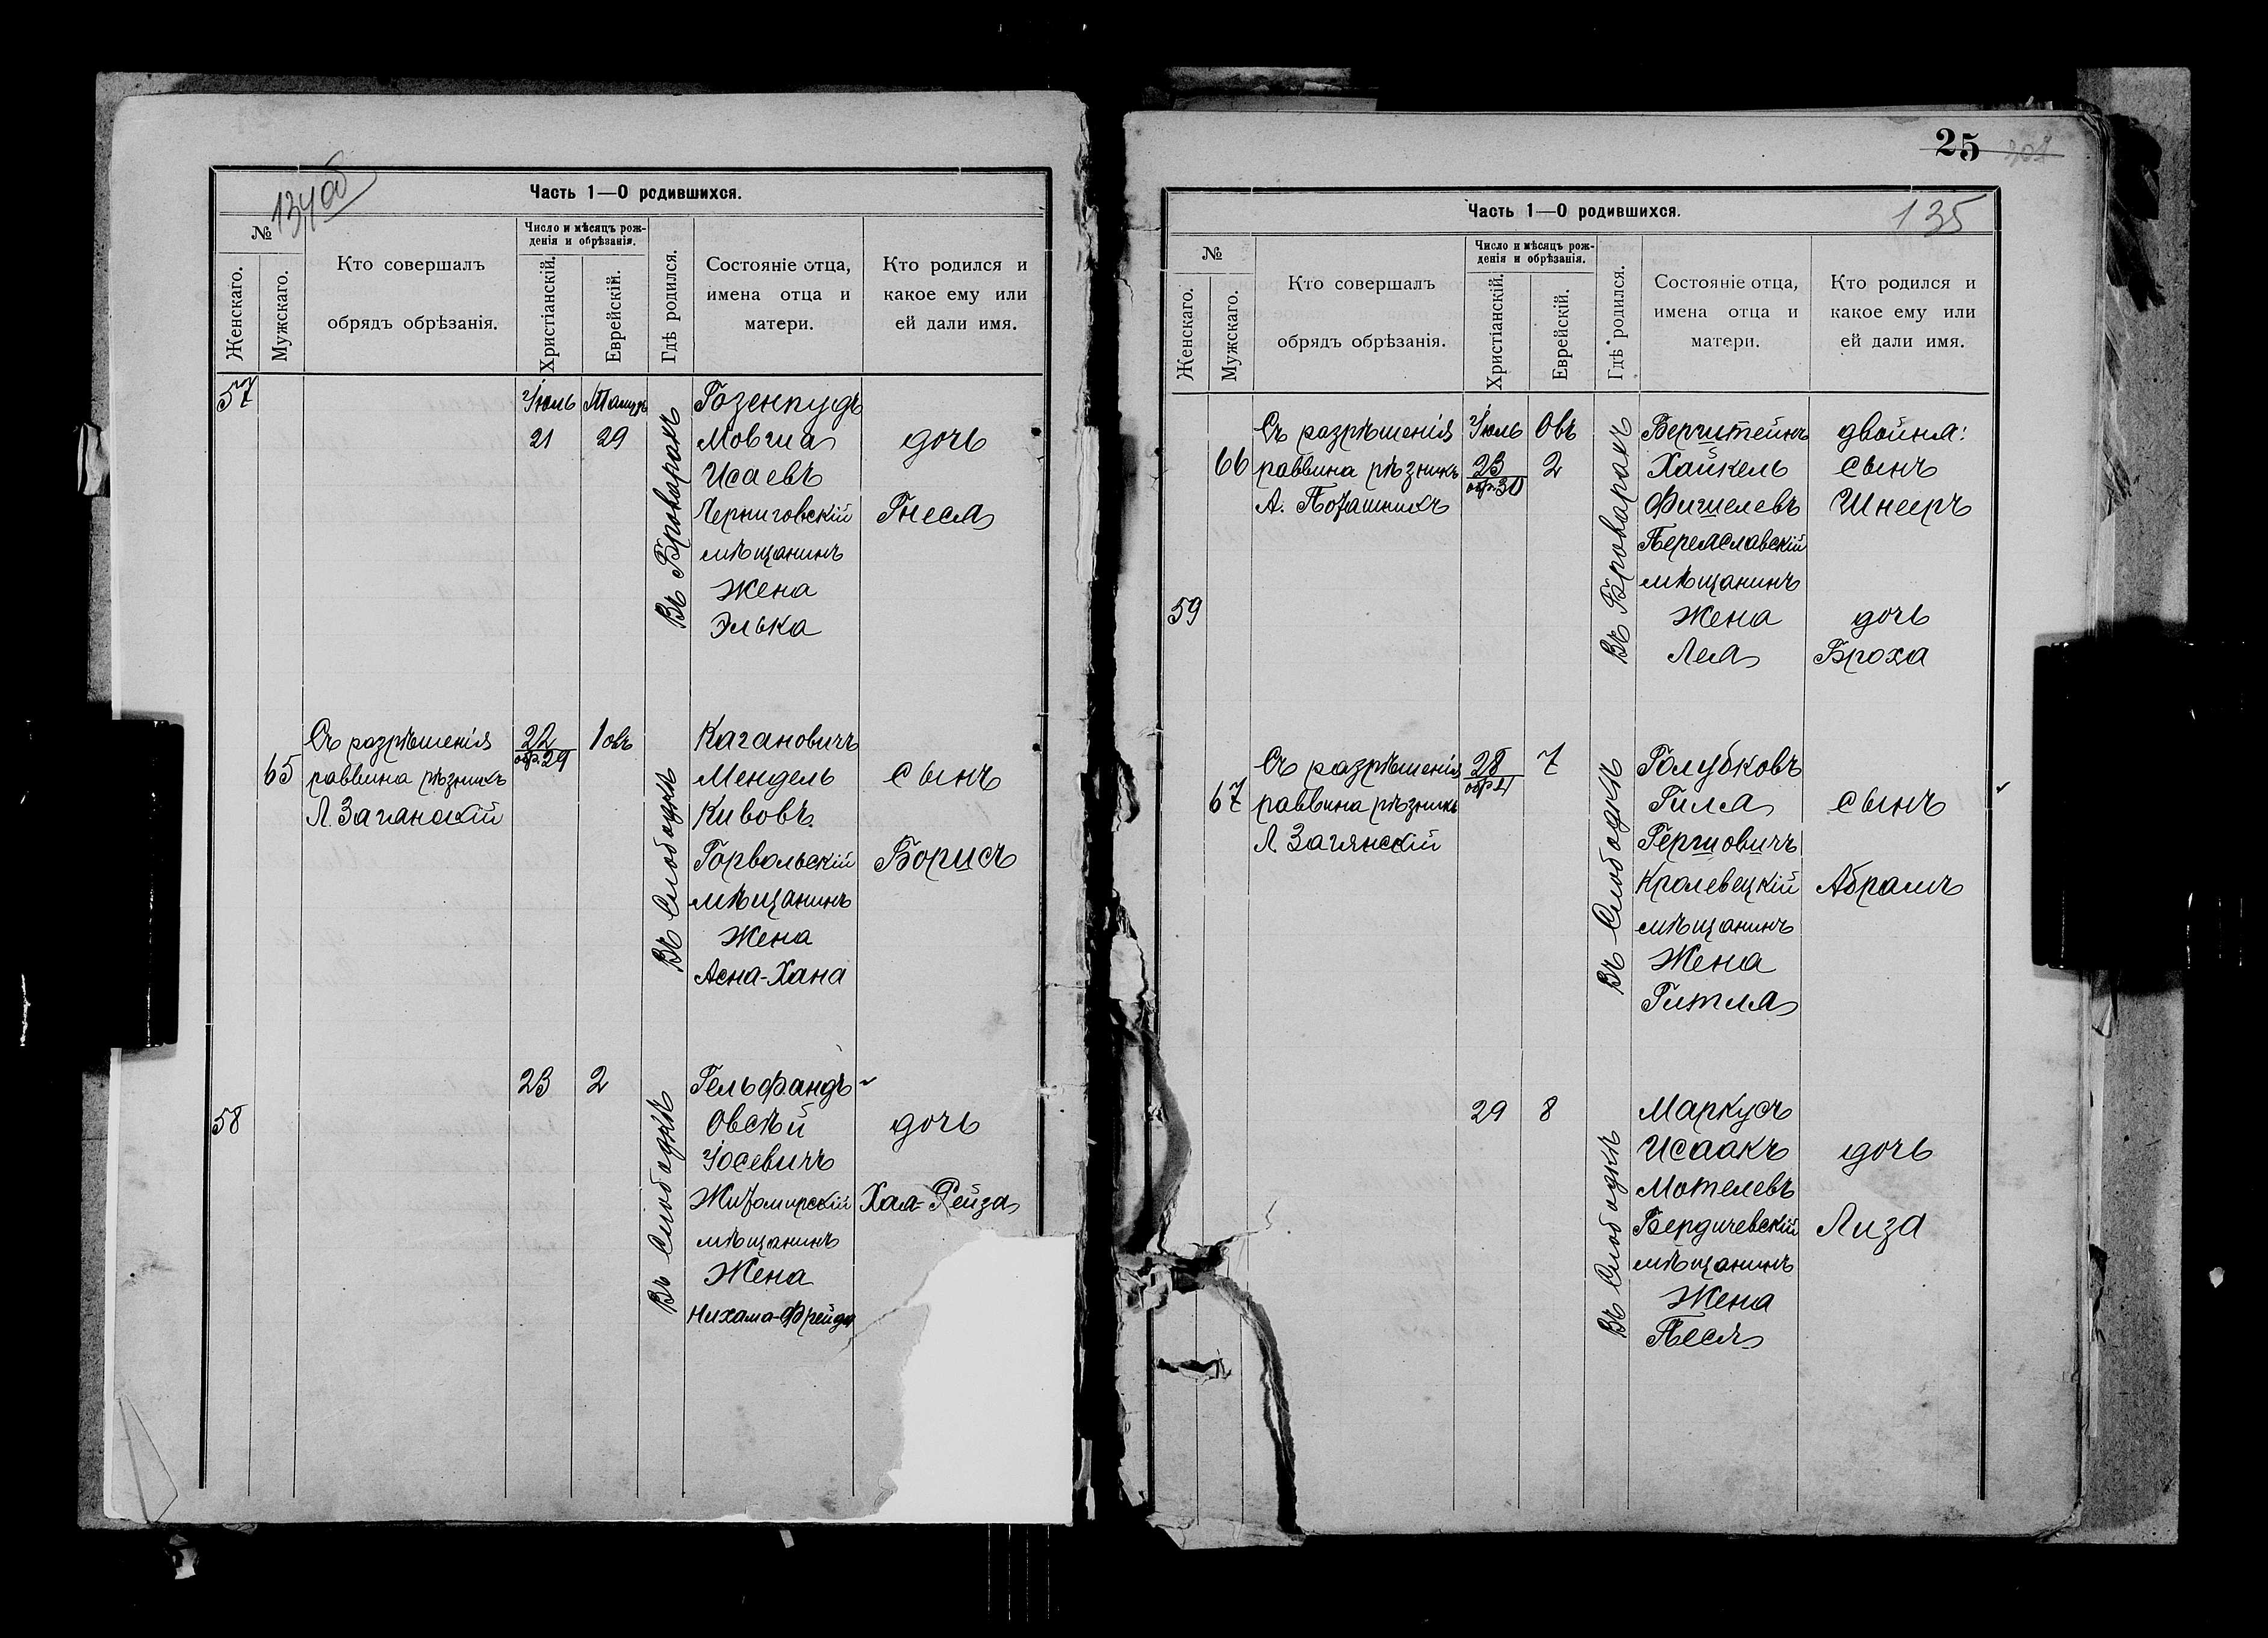 134об
Часть 1—О родившихся.
№
Женскаго.
Мужскаго.
Кто совершалъ
обрядъ обрѣзанія.
Число и мѣсяцъ рож-
денія и обрѣзанія.
Христіанскій.
Еврейскій.
Гдѣ родился.
Состояніе отца,
имена отца и
матери.
Кто родился и
какое ему или
ей дали имя.
57
Іюль
21
29
Въ Броварахъ
Розенпудъ
Мовша
Исаевъ
Черниговскій
мѣщанинъ
Жена
Элька
дочь
Гнеся
65
Съ разрѣшенія
раввина рѣзникъ
Л. Заганскій
22
обр. 29
1 овъ
Въ Слободкѣ
Кагановичъ
Мендель
Кивовъ
Горвольскій
мѣщанинъ
Жена
Асна-Хана
сынъ
Борисъ
58
23
2
Въ Слободкѣ
Гельфандъ
Овсѣй
Іосевичъ
Житомирскій
мѣщанинъ
Жена
Нихама-Фрейда
дочь
Хая-Рейза
25
135
Часть 1—О родившихся.
№
Женскаго.
Мужскаго.
Кто совершалъ
обрядъ обрѣзанія.
Число и мѣсяцъ рож-
денія и обрѣзанія.
Христіанскій.
Еврейскій.
Гдѣ родился.
Состояніе отца,
имена отца и
матери.
Кто родился и
какое ему или
ей дали имя.
66
59
Съ разрѣшенія
раввина рѣзникъ
А. Поташникъ
Іюль
23
обр. 30
Овъ
2
Въ Броварахъ
Берштейнъ
Хайкель
Фишелевъ
Переяславскій
мѣщанинъ
Жена
Лея
двойня:
сынъ
Шнееръ
дочь
Броха
67
Съ разрѣшенія
раввина рѣзникъ
Л. Загянскій
28
7
Въ Слободкѣ
Голубковъ
Гиля
Гершовичъ
Кролевецкій
мѣщанинъ
Жена
Гитля
сынъ
Абрамъ
29
8
Въ Слободкѣ
Маркусъ
Исаакъ
Мотелевъ
Бердичевскій
мѣщанинъ
Жена
Песя
дочь
Лиза